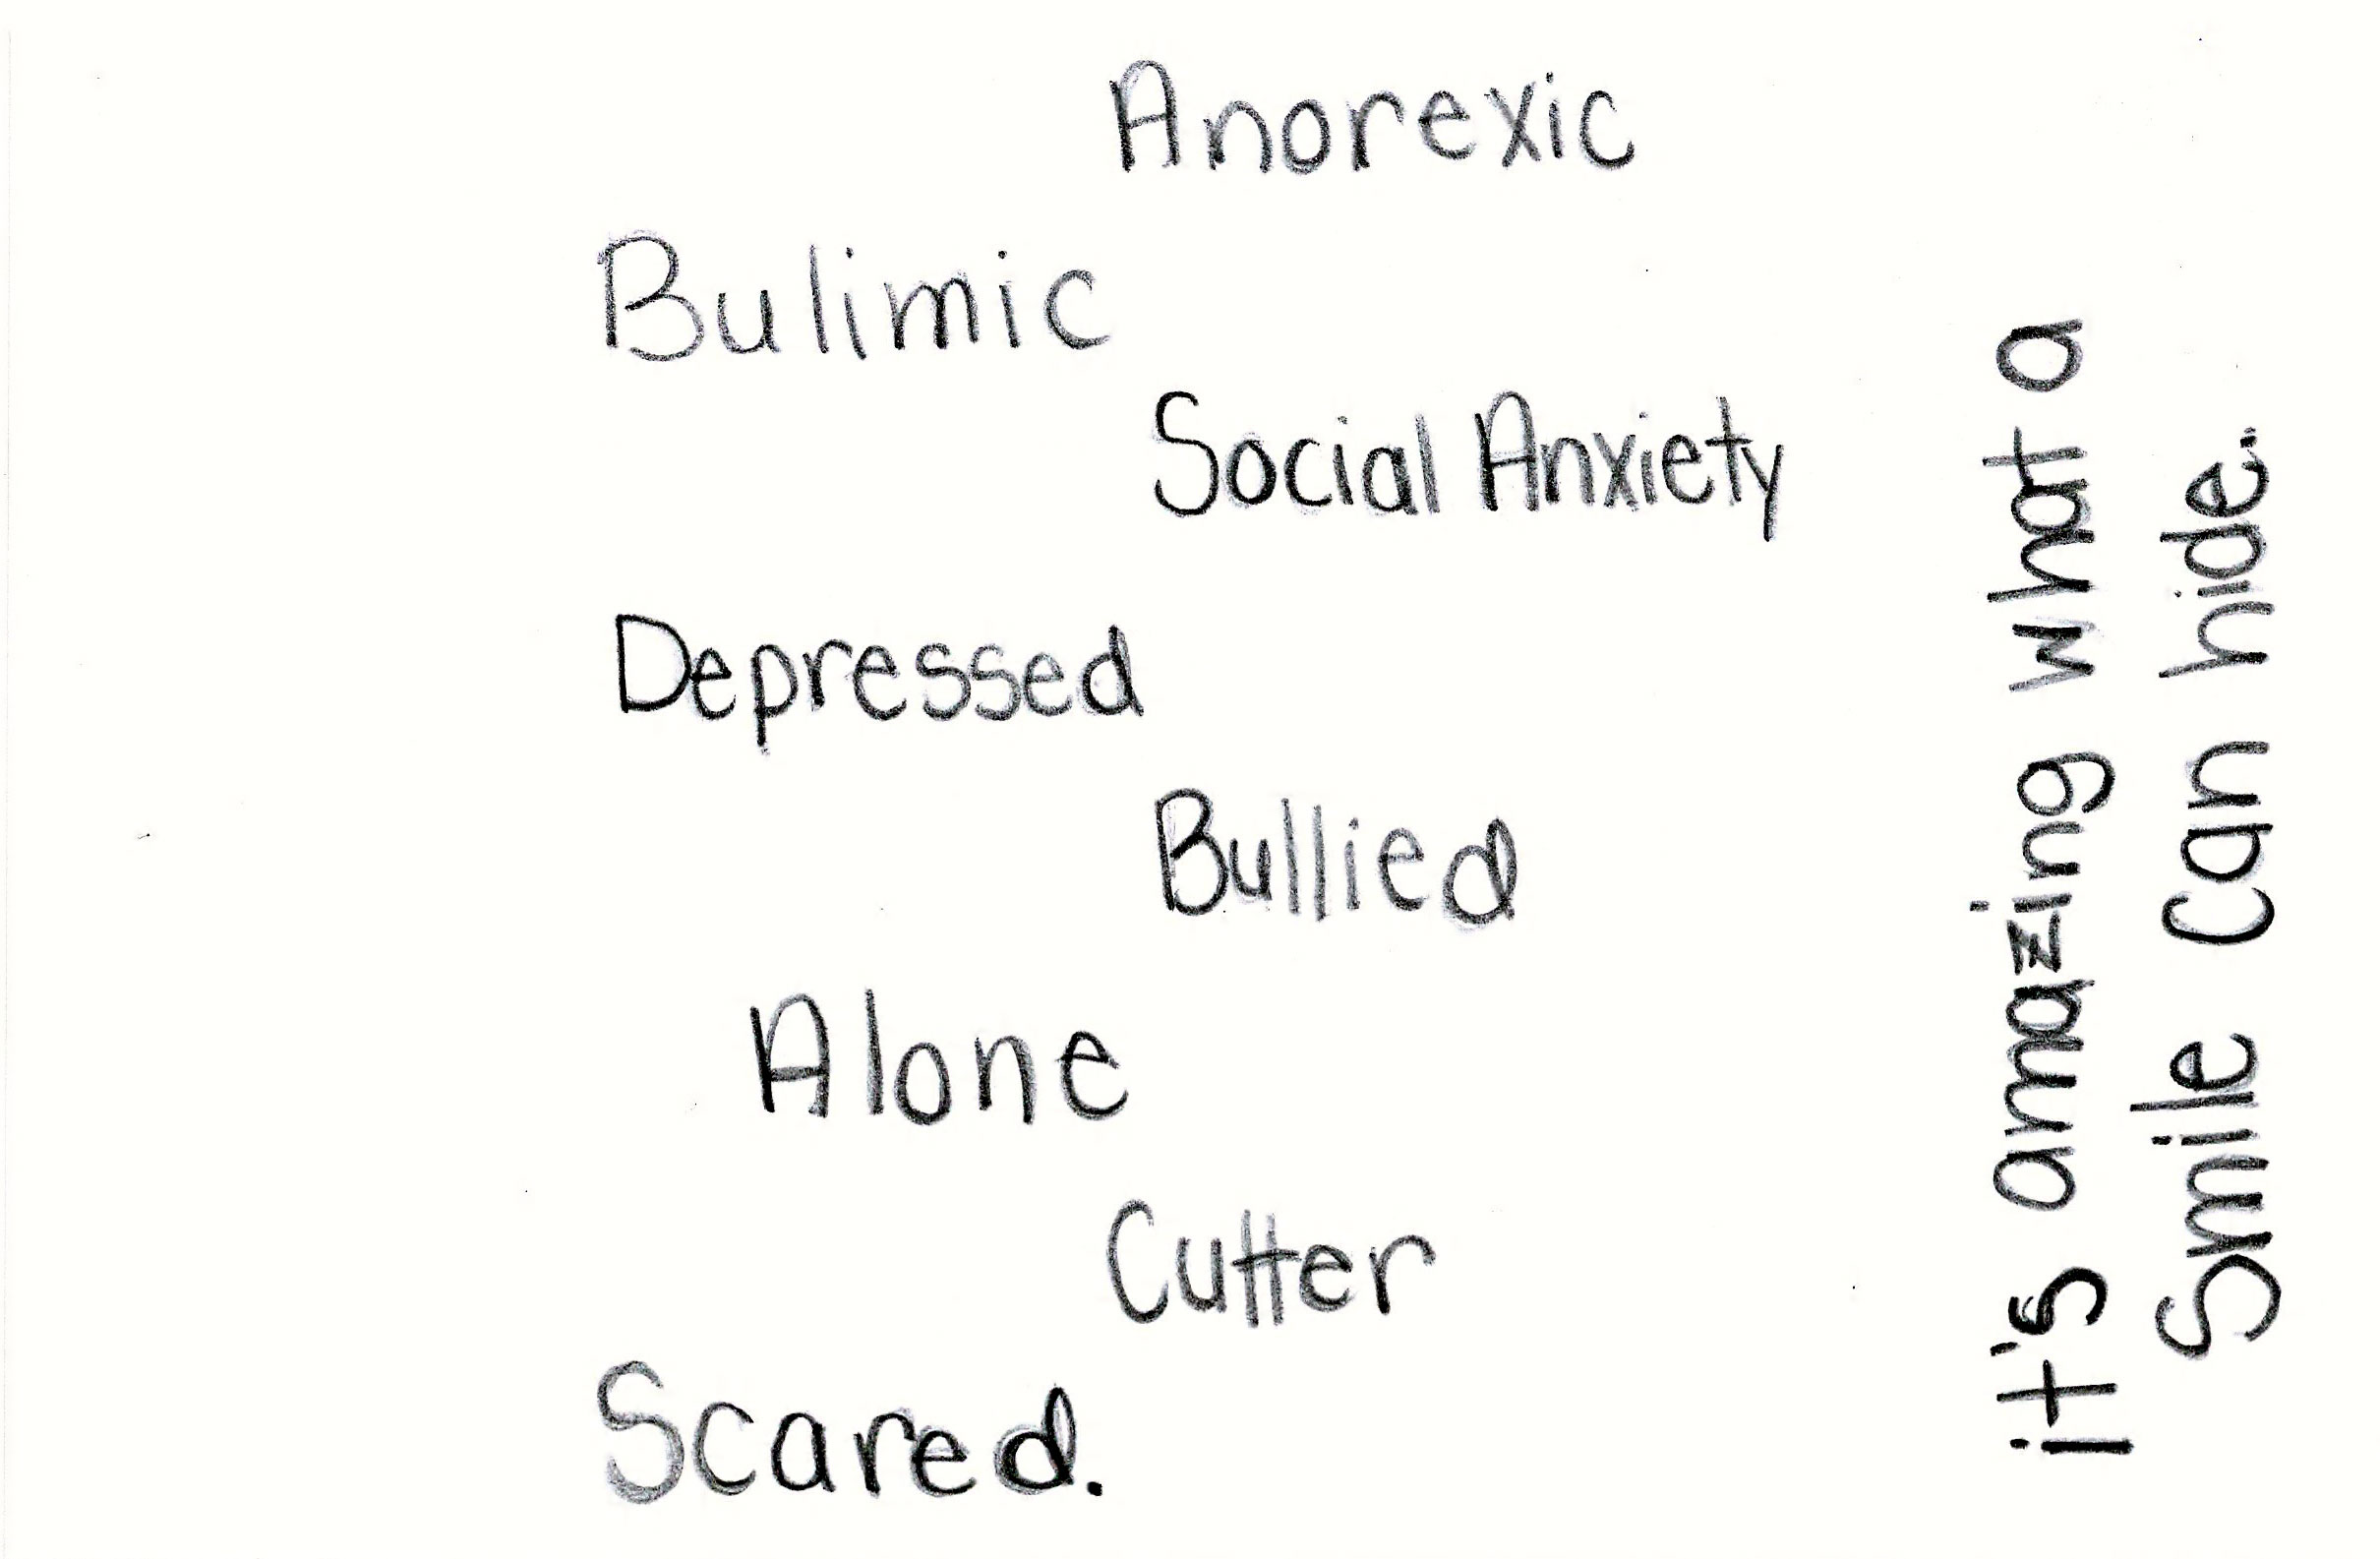 Anorexic
Bulimic
Social Anxiety
Depressed
Bullied
Alone
Cutter
Scared.
it's amazing what a
Smile Can hide.